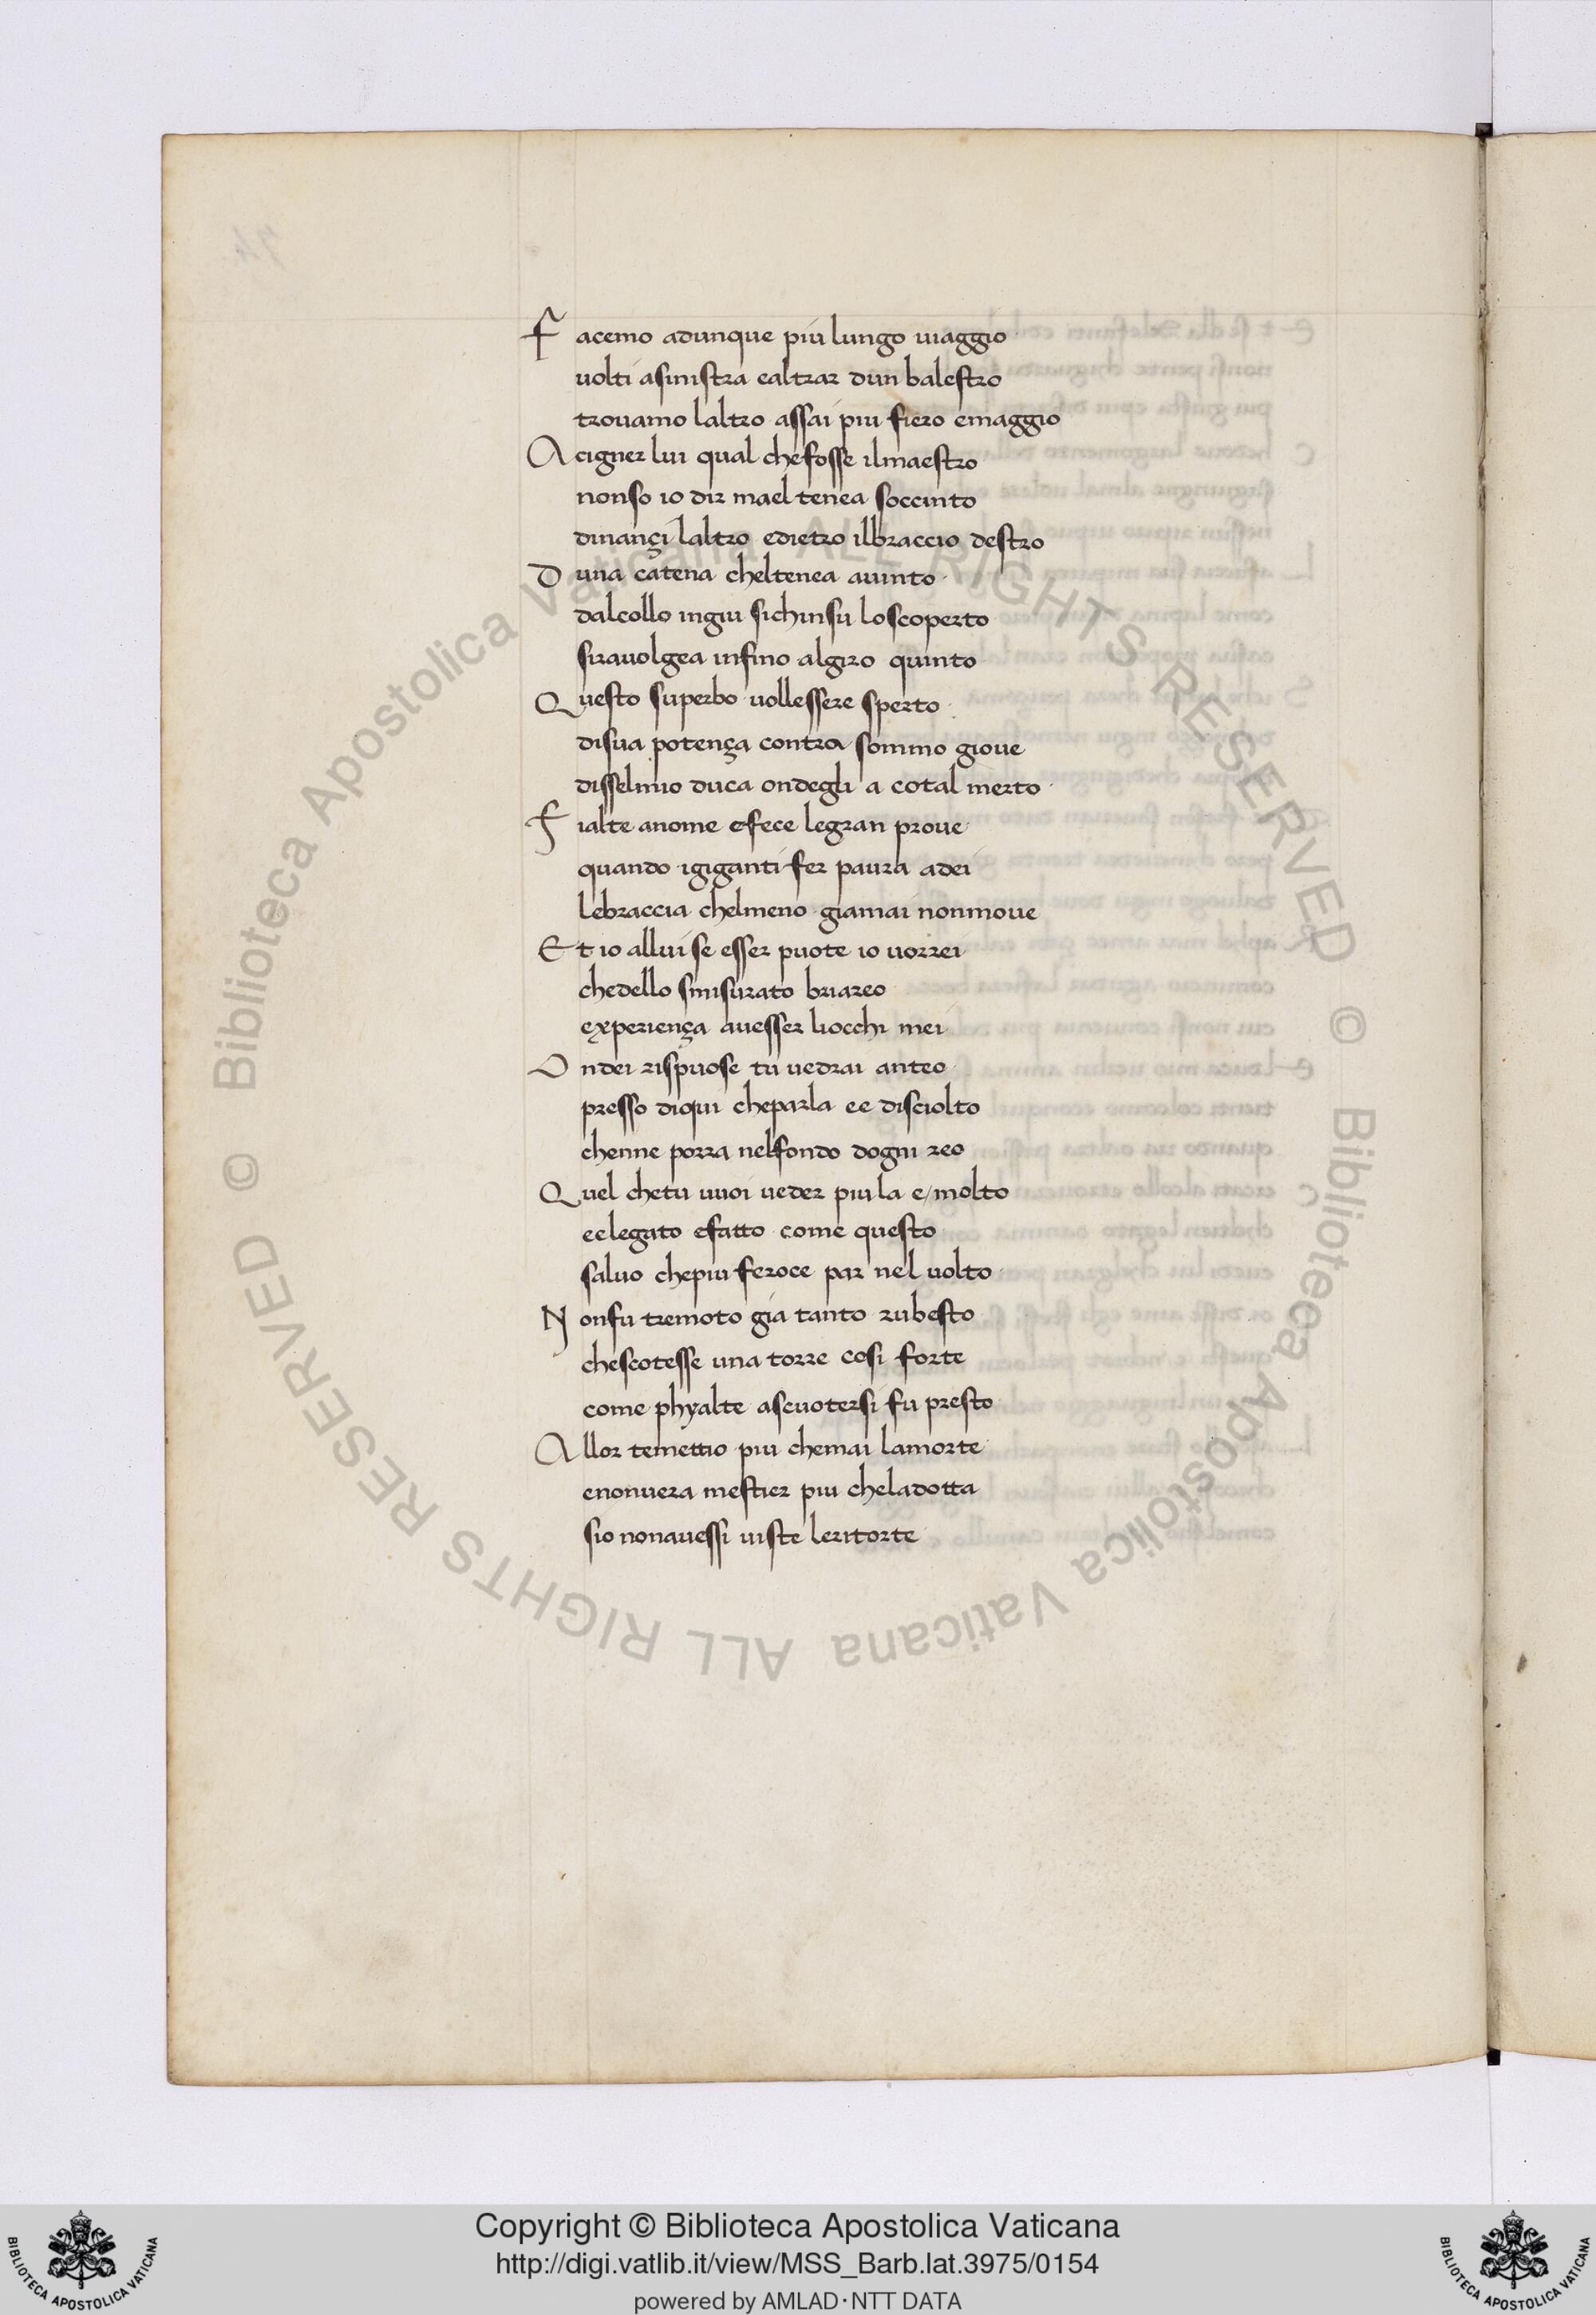 F acemo adunque piu lungo uiaggio
uolti asinistra ealtrar dun balestro
trouamo laltro assai piu fiero emaggio
A cigner lui qual chefosse ilmaestro
nonso io dir mael tenea soccinto
dinançi laltro edietro ilbraccio destro
D una catena cheltenea auinto
dalcollo ingiu sichinsu loscoperto
sirauolgea infino algiro quinto
Q uesto superbo uollessere sperto
disua potença contra sommo gioue
disselmio duca ondegli a cotal merto
F ialte anome efece legran proue
quando igiganti fer paura adei
lebraccia chelmeno giamai nonmoue
E t io allui se esser puote io uorrei
chedello smisurato briareo
experiença auesser liocchi mei
O ndei rispuose tu uedrai anteo
presso diqui cheparla ee disciolto
chenne porra nelfondo dogni reo
Q uel chetu uuoi ueder piu la e/molto
eelegato efatto come questo
saluo chepiu feroce par nel uolto
N onfu tremoto gia tanto rubesto
chescotesse una torre cosi forte
come phyalte ascuotersi fu presto
A llor temettio piu chemai lamorte
enonuera mestier piu cheladotta
sio nonauessi uiste leritorte
© Biblioteca Apostolica Vaticana ALL RIGHTS RESERVED
© Biblioteca Apostolica Vaticana ALL RIGHTS RESERVED
Copyright © Biblioteca Apostolica Vaticana
http://digi.vatlib.it/view/MSS_Barb.lat.3975/0154
powered by AMLAD·NTT DATA
BIBLIOTECA APOSTOLICA VATICANA
BIBLIOTECA APOSTOLICA VATICANA